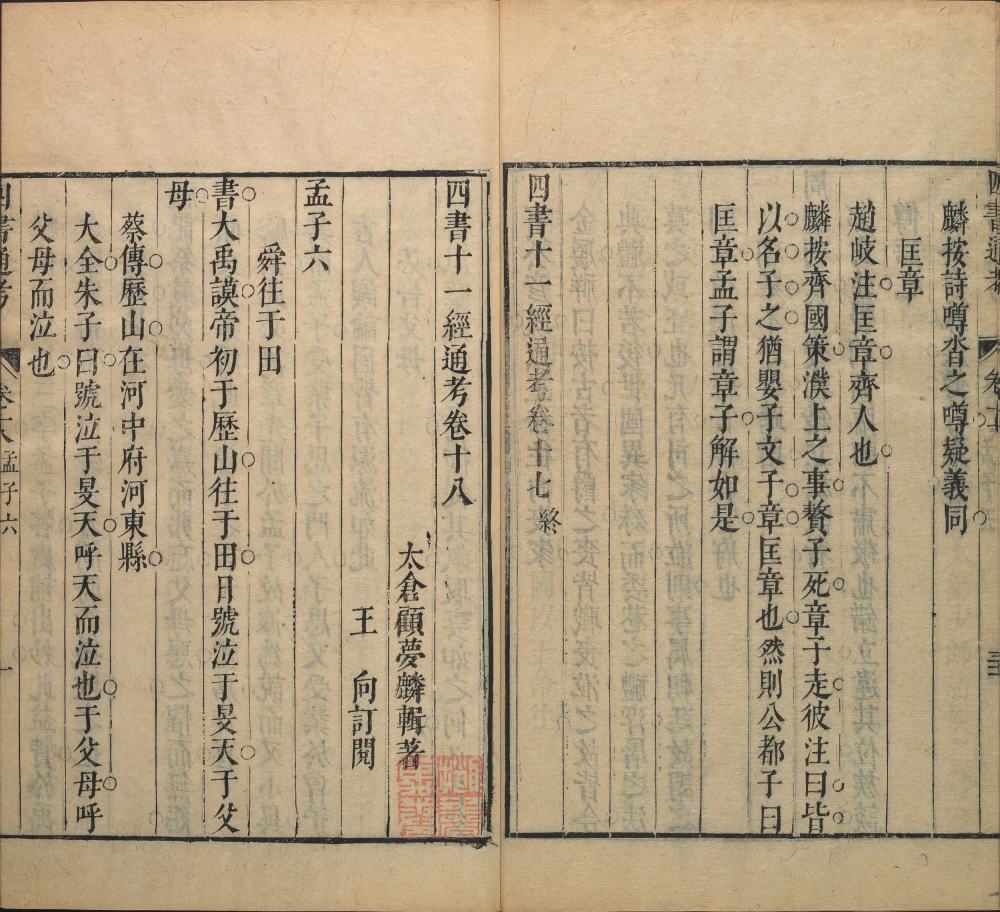 麟按詩噂沓之噂疑義同
匡章
趙岐注匡章齊人也
麟按齊國策濮上之事贅子死章子走彼注曰皆
以名子之猶嬰子文子章匡章也然則公都子曰
匡章孟子謂章子解如是
四書十一經通考卷十七終
四書十一經通考卷十八
太倉顧夢麟輯著
王向訂閱
孟子六
舜往于田
書大禹謨帝初于歷山往于田日號泣于旻天于父
母
蔡傳歷山在河中府河東縣
大全朱子曰號泣于旻天呼天而泣也于父母呼
父母而泣也
四書通考 卷十八 孟子六 一